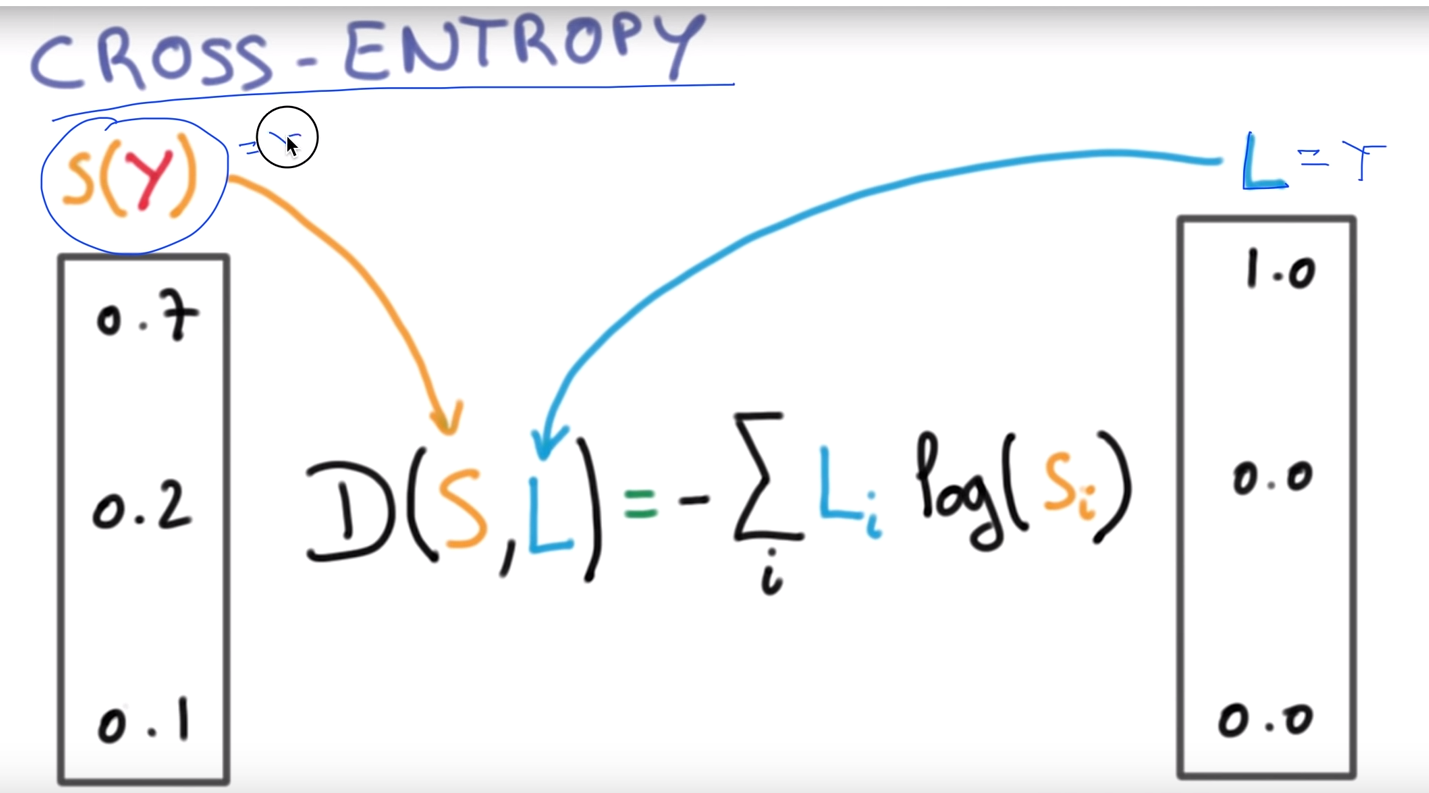 CROSS-ENTROPY
S(Y) =
L = Y
0.7
0.2
0.1
D(S,L) = -∑ᵢ Lᵢ log(Sᵢ)
1.0
0.0
0.0